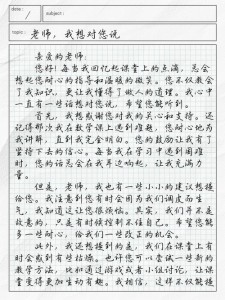 date:
subject:
topic: 老师，我想对您说
亲爱的老师：
您好！每当我回忆起课堂上的点滴，总会
想起您耐心的指导和温暖的微笑。您不仅教会
了我知识，更让我懂得了做人的道理。我心中
一直有一些话想对您说，希望您能听到。
首先，我想感谢您对我的关心和支持。还
记得那次我在数学课上遇到难题，您耐心地为
我讲解，直到我完全明白。您的鼓励让我有了
坚持下去的信心。每当我在学习中遇到困难
时，您的话总会在我耳边响起，让我充满力
量。
但是，老师，我也有一些小小的建议想提
给您。我注意到您有时会因为我们调皮而生
气，我知道这让您很烦恼。其实，我们并不是
故意的，只是有时候控制不住自己。希望您能
多一些耐心，给我们一些改正的机会。
此外，我还想提到的是，我们在课堂上有
时会感到有些枯燥。也许您可以尝试一些新的
教学方法，比如通过游戏或者小组讨论，让课
堂变得更加生动有趣。我相信，这样不仅能提